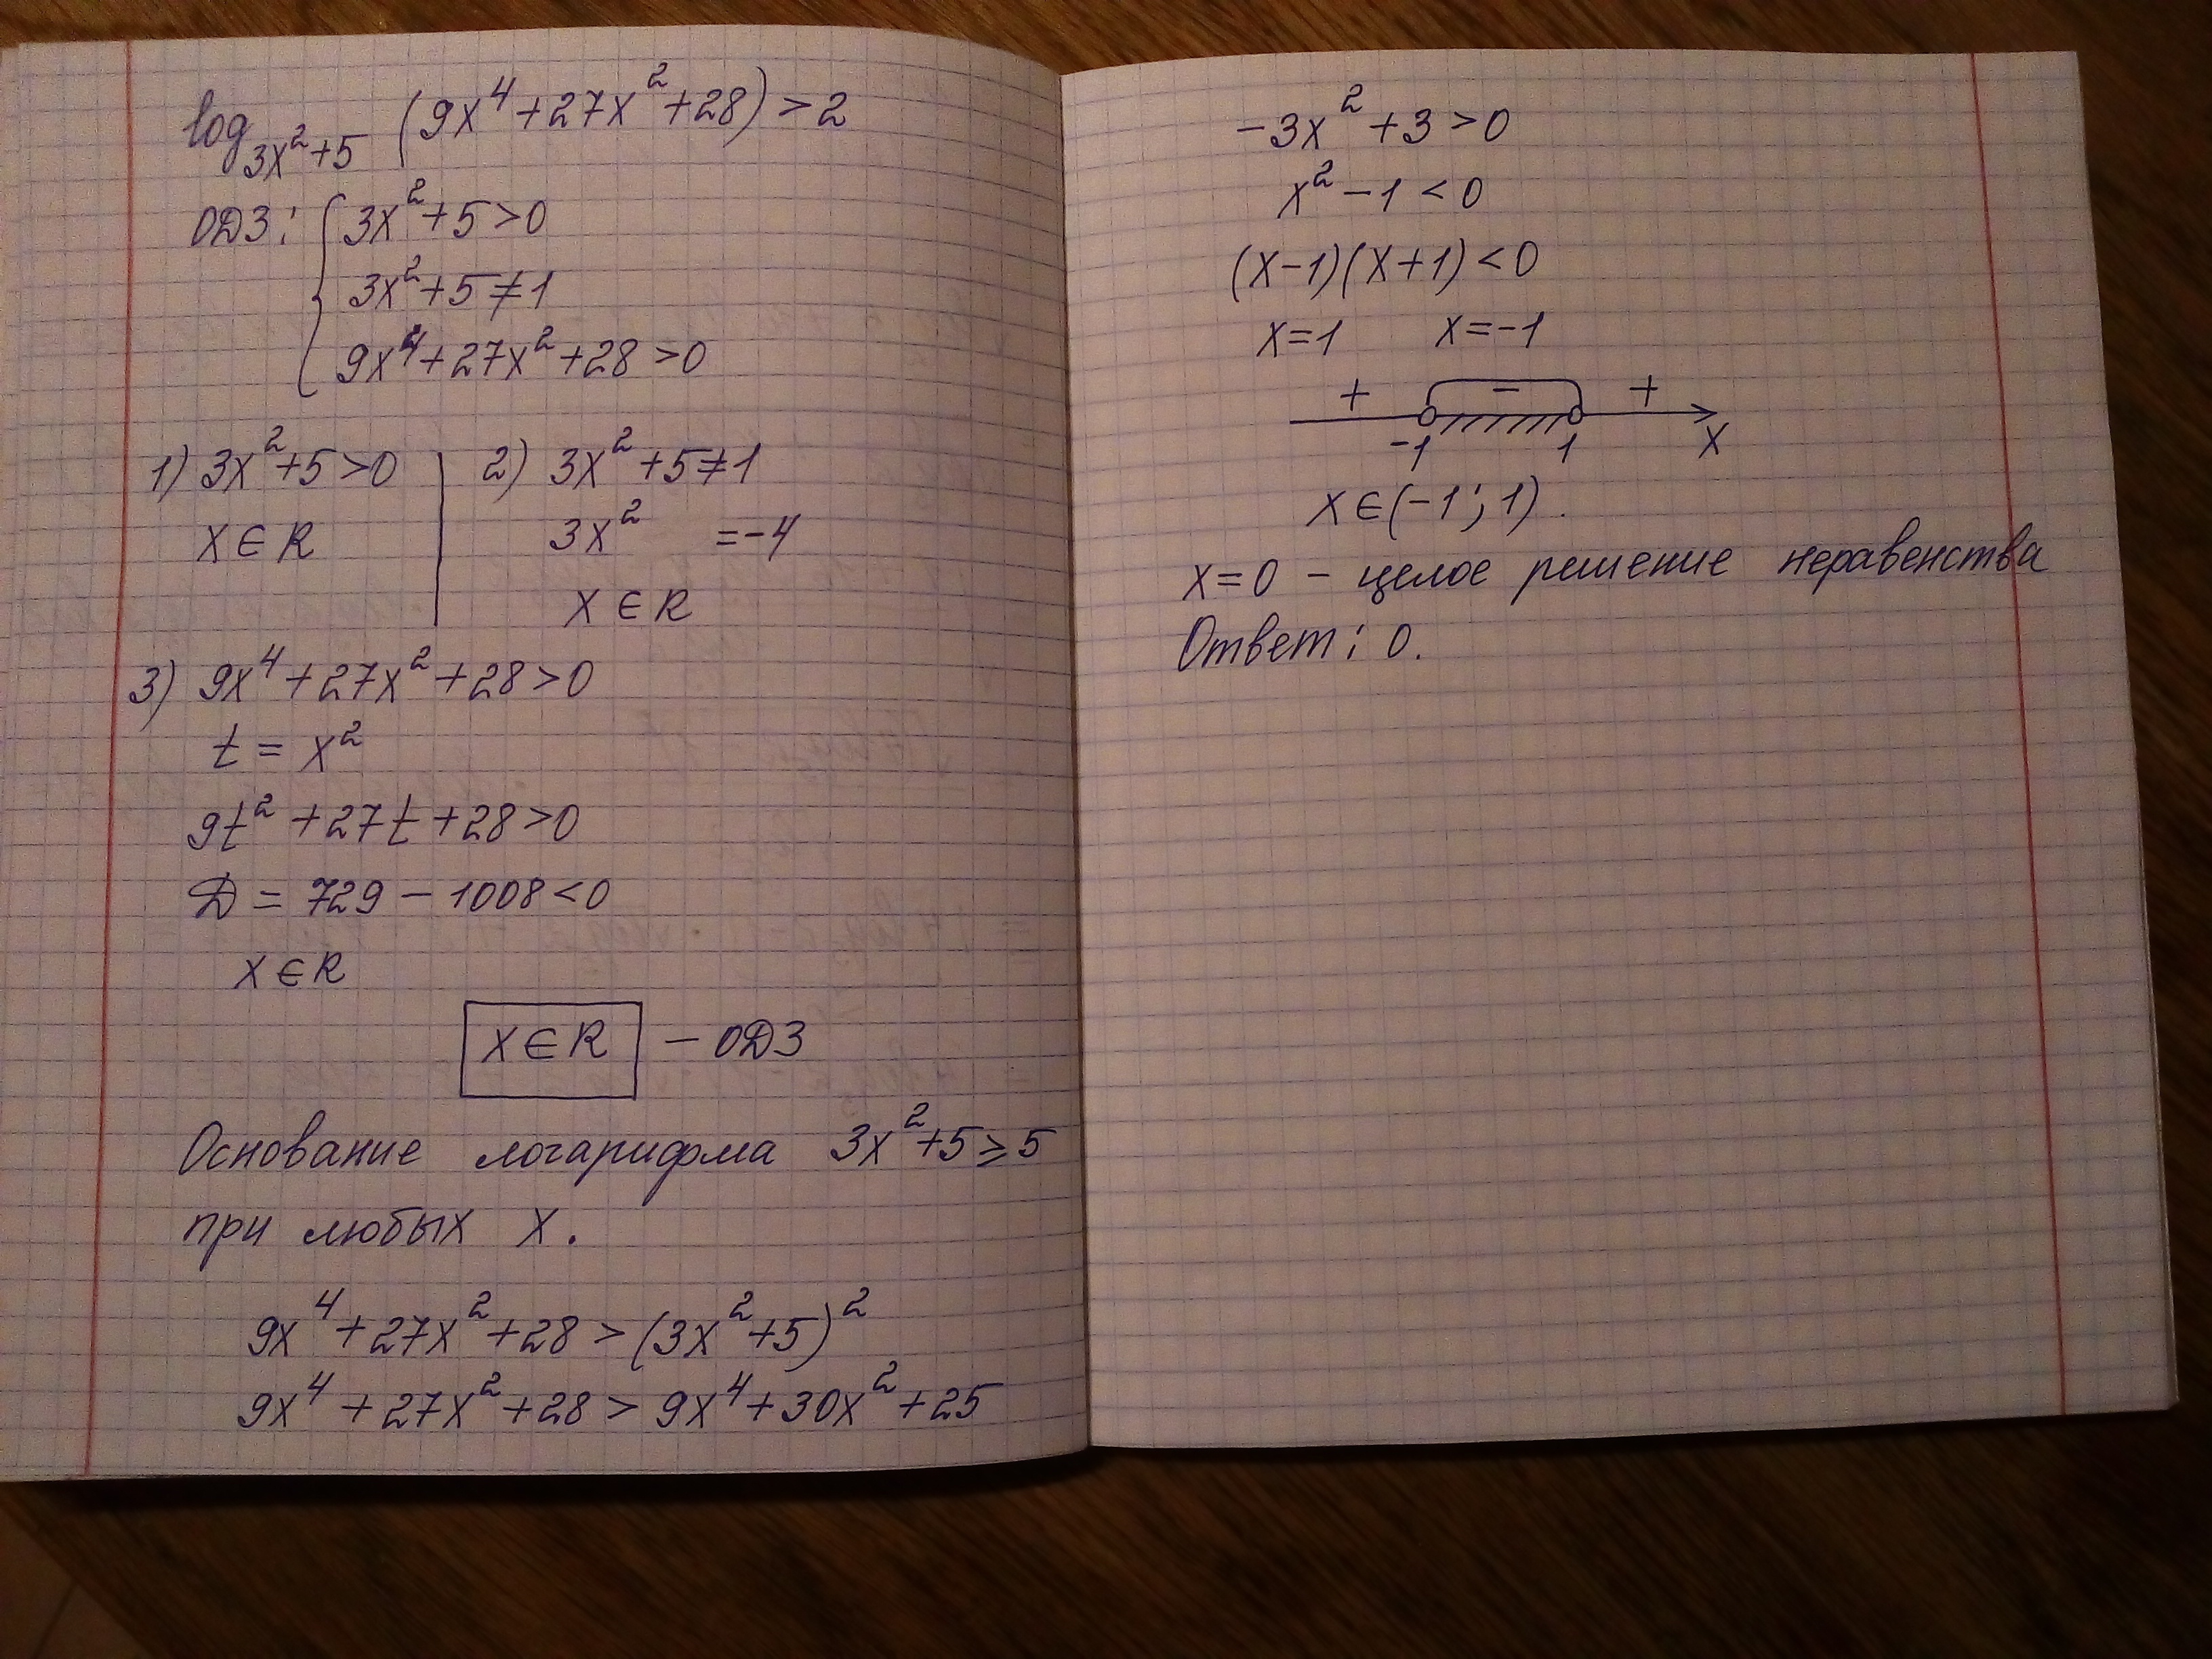 log₃ₓ²₊₅ (9x⁴+27x²+28)>2
ОДЗ: { 3x²+5>0
3x²+5≠1
9x⁴+27x²+28>0
1) 3x²+5>0 | 2) 3x²+5≠1
x∈R 3x² =-4
x∈R
3) 9x⁴+27x²+28>0
t = x²
9t²+27t+28>0
D = 729 - 1008<0
x∈R
x∈R - ОДЗ
Основание логарифма 3x²+5≥5
при любых x.
9x⁴+27x²+28>(3x²+5)²
9x⁴+27x²+28>9x⁴+30x²+25
-3x²+3>0
x²-1<0
(x-1)(x+1)<0
x=1 x=-1
+ - +
-1 1 x
x∈(-1;1).
x=0 - целое решение неравенства
Ответ: 0.